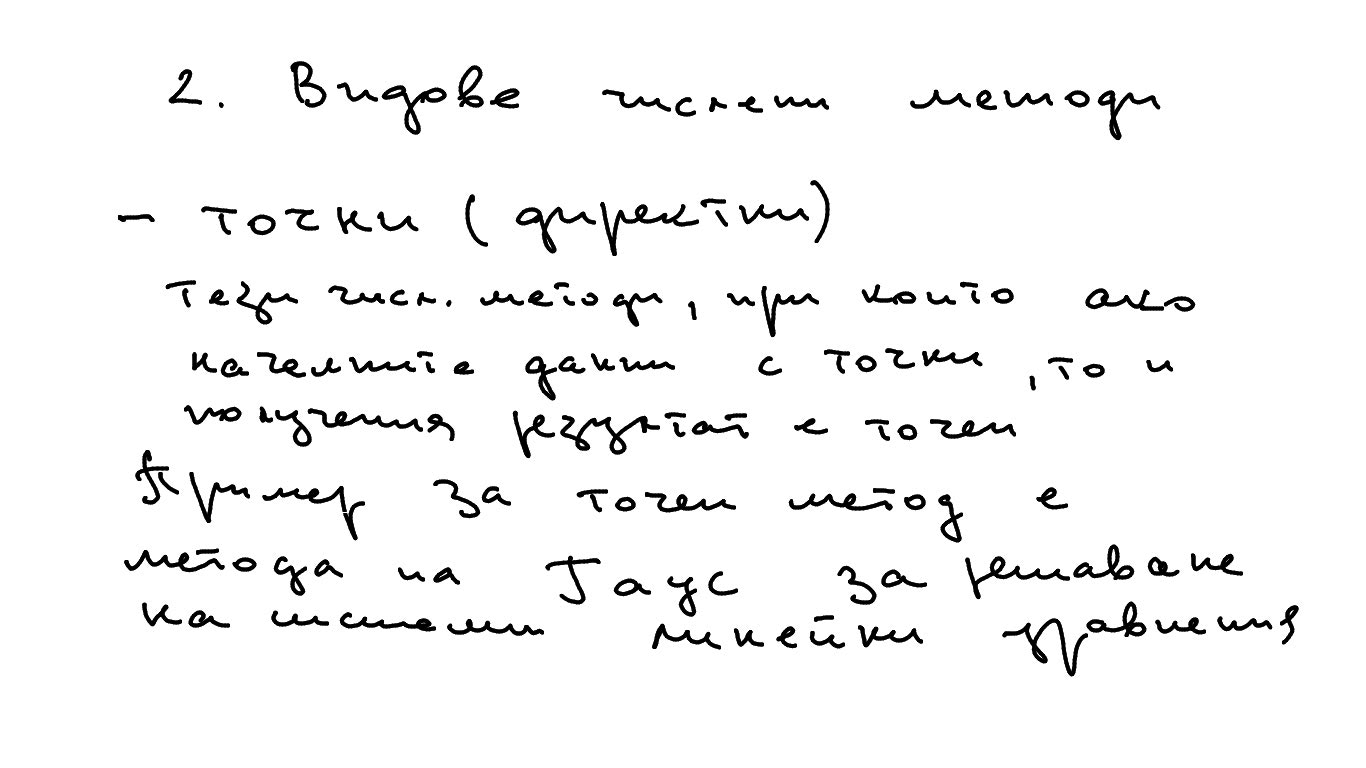 2. Видове числени методи
- точни (директни)
Тези числ. методи, при които ако
началните данни с точни, то и
получения резултат е точен
Пример за точен метод е
метода на Гаус за решаване
на системи линейни уравнения